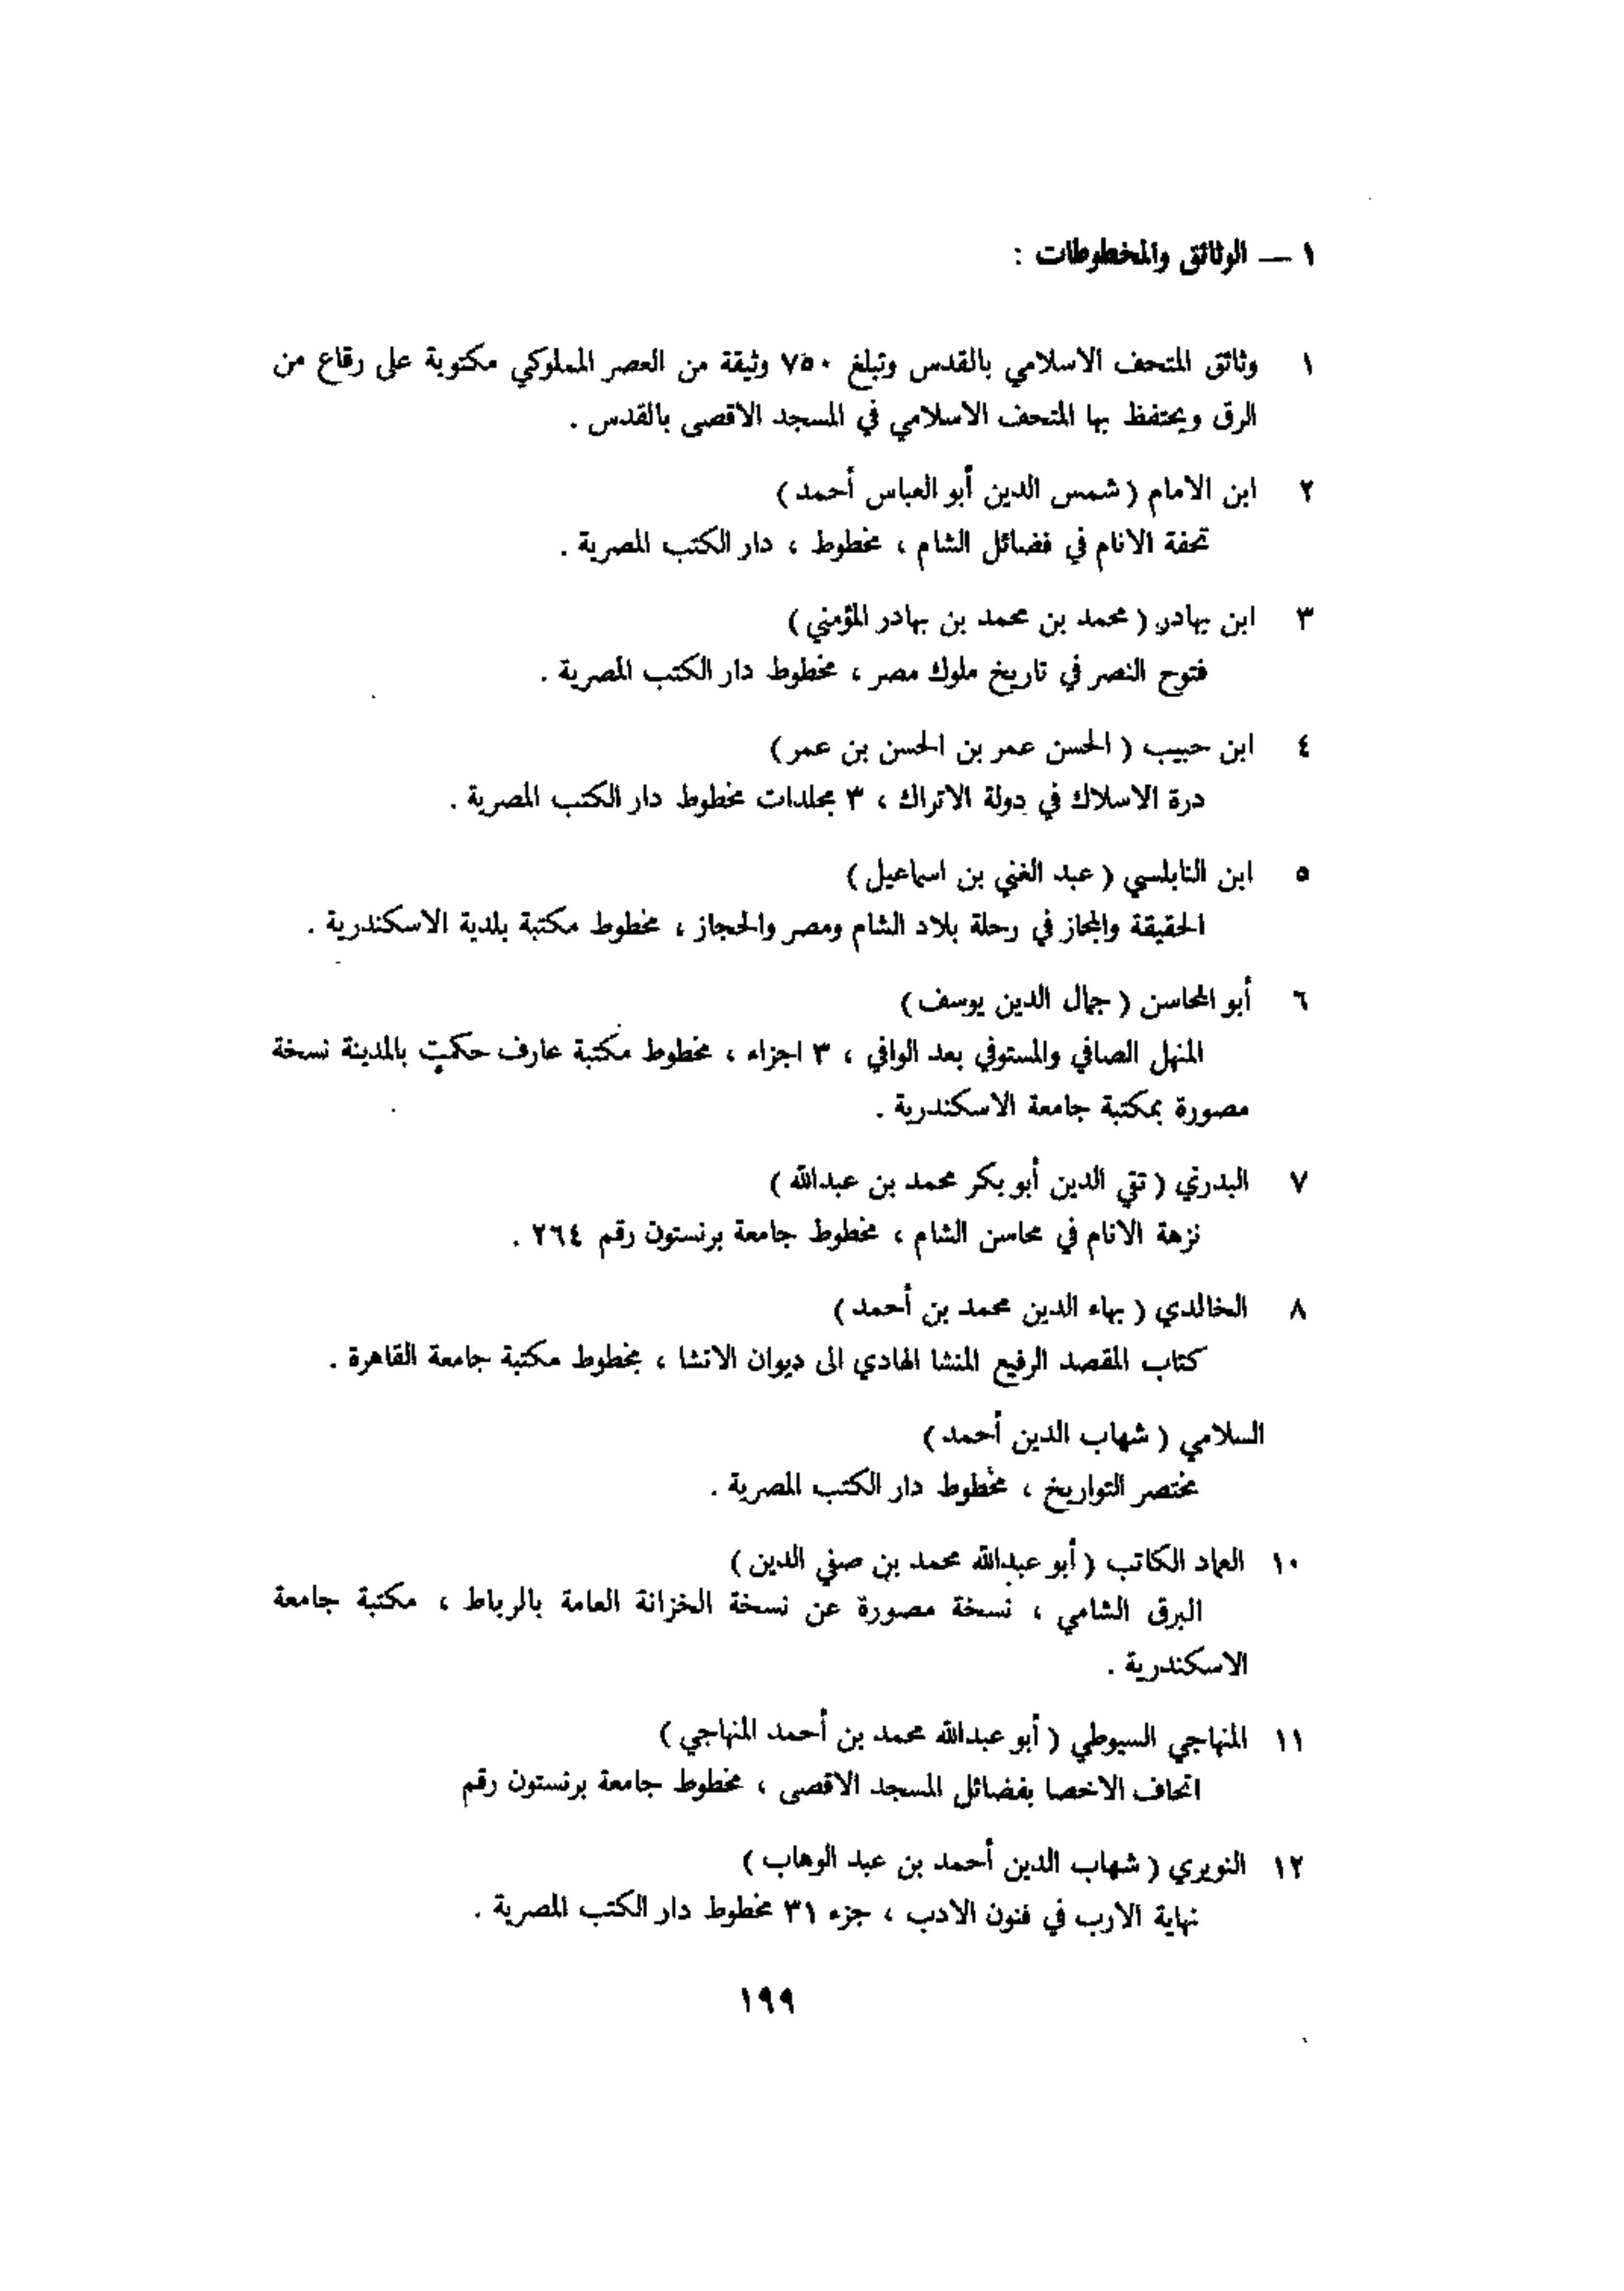 ١ — الوثائق والمخطوطات :
١ وثائق المتحف الاسلامي بالقدس وتبلغ ٧٥٠ وثيقة من العصر المملوكي مكتوبة على رقاع من
الرق ويحتفظ بها المتحف الاسلامي في المسجد الاقصى بالقدس .
٢ ابن الامام ( شمس الدين أبو العباس أحمد )
تحفة الانام في فضائل الشام ، مخطوط ، دار الكتب المصرية .
٣ ابن بهادر ( محمد بن محمد بن بهادر المؤمني )
فتوح النصر في تاريخ ملوك مصر ، مخطوط دار الكتب المصرية .
٤ ابن حبيب ( الحسن عمر بن الحسن بن عمر )
درة الاسلاك في دولة الاتراك ، ٣ مجلدات مخطوط دار الكتب المصرية .
٥ ابن النابلسي ( عبد الغني بن اسماعيل )
الحقيقة والمجاز في رحلة بلاد الشام ومصر والحجاز ، مخطوط مكتبة بلدية الاسكندرية .
٦ أبو المحاسن ( جمال الدين يوسف )
المنهل الصافي والمستوفي بعد الوافي ، ٣ اجزاء ، مخطوط مكتبة عارف حكمت بالمدينة نسخة
مصورة بمكتبة جامعة الاسكندرية .
٧ البدري ( تقي الدين أبو بكر محمد بن عبدالله )
نزهة الانام في محاسن الشام ، مخطوط جامعة برنستون رقم ٢٦٤ .
٨ الخالدي ( بهاء الدين محمد بن أحمد )
كتاب المقصد الرفيع المنشا الهادي الى ديوان الانشا ، مخطوط مكتبة جامعة القاهرة .
السلامي ( شهاب الدين أحمد )
مختصر التواريخ ، مخطوط دار الكتب المصرية .
١٠ العماد الكاتب ( أبو عبدالله محمد بن صفي الدين )
البرق الشامي ، نسخة مصورة عن نسخة الخزانة العامة بالرباط ، مكتبة جامعة
الاسكندرية .
١١ المنهاجي السيوطي ( أبو عبدالله محمد بن أحمد المنهاجي )
اتحاف الاخصا بفضائل المسجد الاقصى ، مخطوط جامعة برنستون رقم
١٢ النويري ( شهاب الدين أحمد بن عبد الوهاب )
نهاية الارب في فنون الادب ، جزء ٣١ مخطوط دار الكتب المصرية .
١٩٩